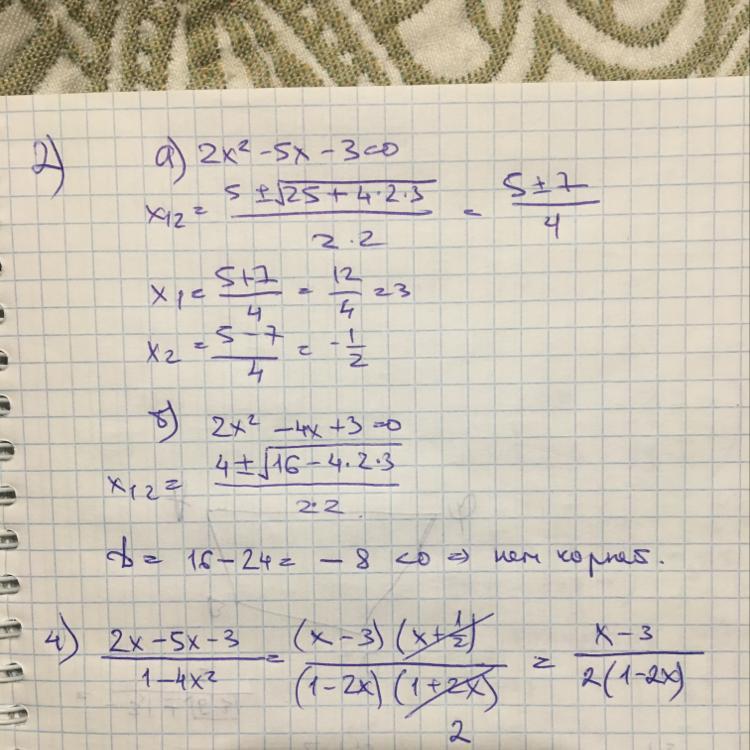 2) а) 2x² - 5x - 3 = 0
x₁₂ = (5 ± √(25 + 4·2·3)) / (2·2) = (5 ± 7) / 4
x₁ = (5+7)/4 = 12/4 = 3
x₂ = (5-7)/4 = -1/2
б) 2x² - 4x + 3 = 0
x₁₂ = (4 ± √(16 - 4·2·3)) / (2·2)
D = 16 - 24 = -8 < 0 ⇒ нет корней.
4) (2x - 5x - 3) / (1 - 4x²) = ((x - 3)(x + 1/2)) / ((1 - 2x)(1 + 2x)) = (x - 3) / (2(1 - 2x))
2